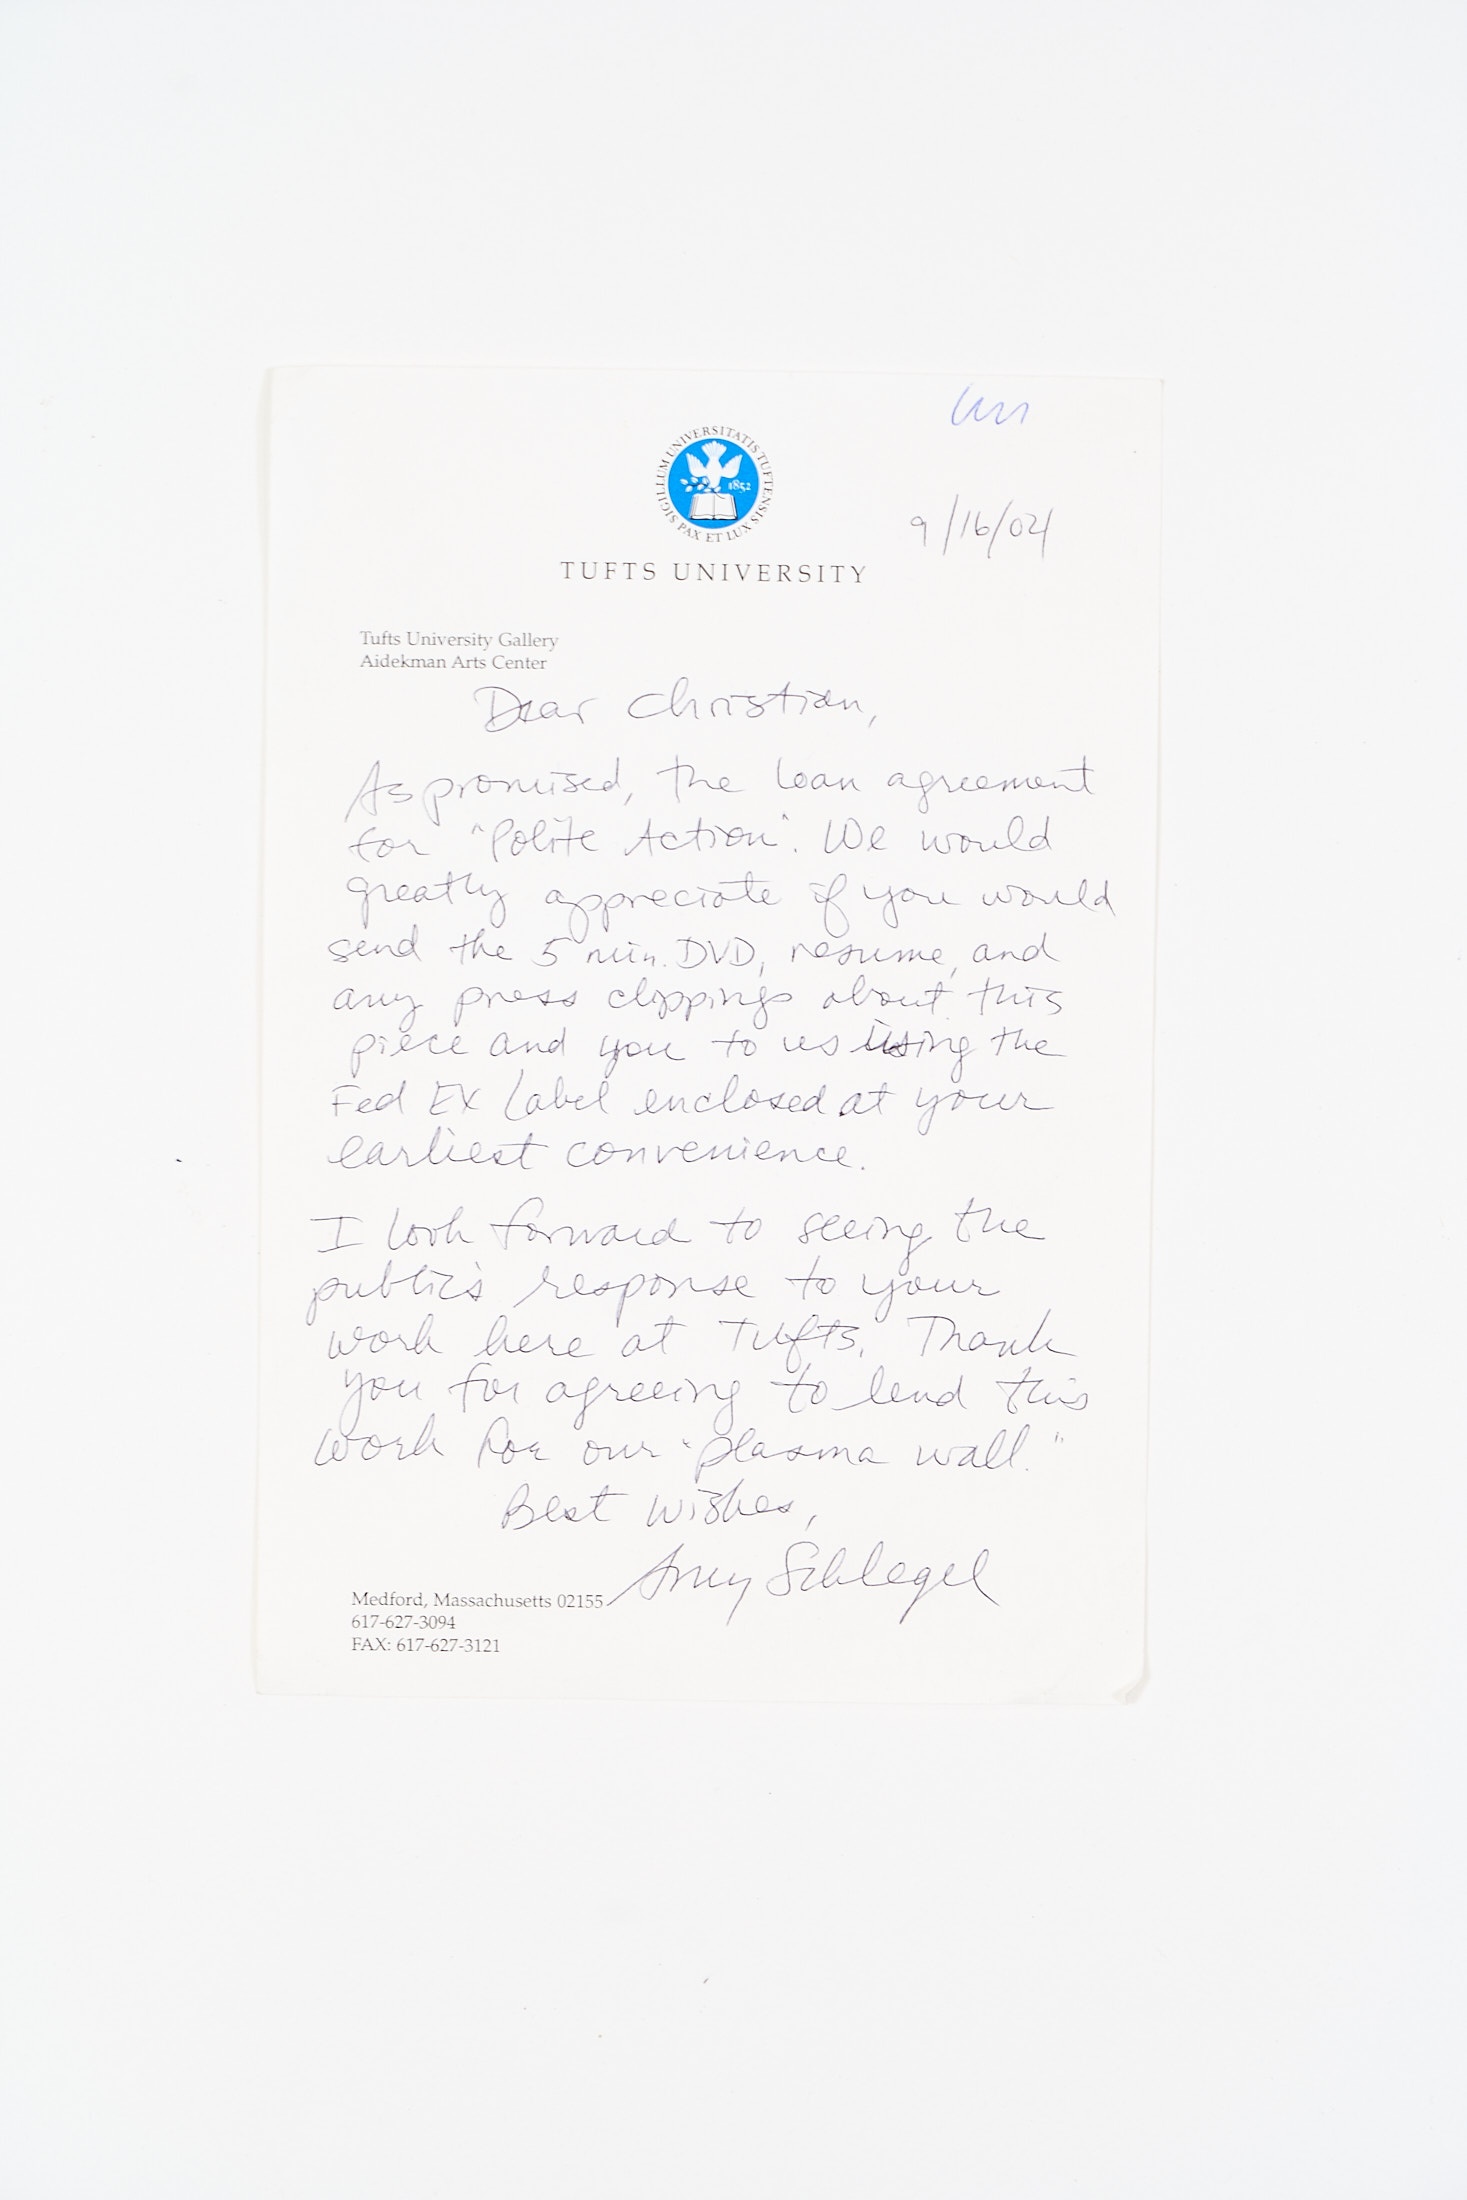 SIGILLUM UNIVERSITATIS TUFTENSIS
1852
PAX ET LUX
9/16/04
TUFTS UNIVERSITY
Tufts University Gallery
Aidekman Arts Center
Dear Christian,
As promised, the loan agreement
for "Polite Action". We would
greatly appreciate if you would
send the 5 min. DVD, resume, and
any press clippings about this
piece and you to us using the
Fed EX label enclosed at your
earliest convenience.
I look forward to seeing the
public's response to your
work here at Tufts. Thank
you for agreeing to lend this
work for our "plasma wall."
Best Wishes,
Amy Schlegel
Medford, Massachusetts 02155
617-627-3094
FAX: 617-627-3121